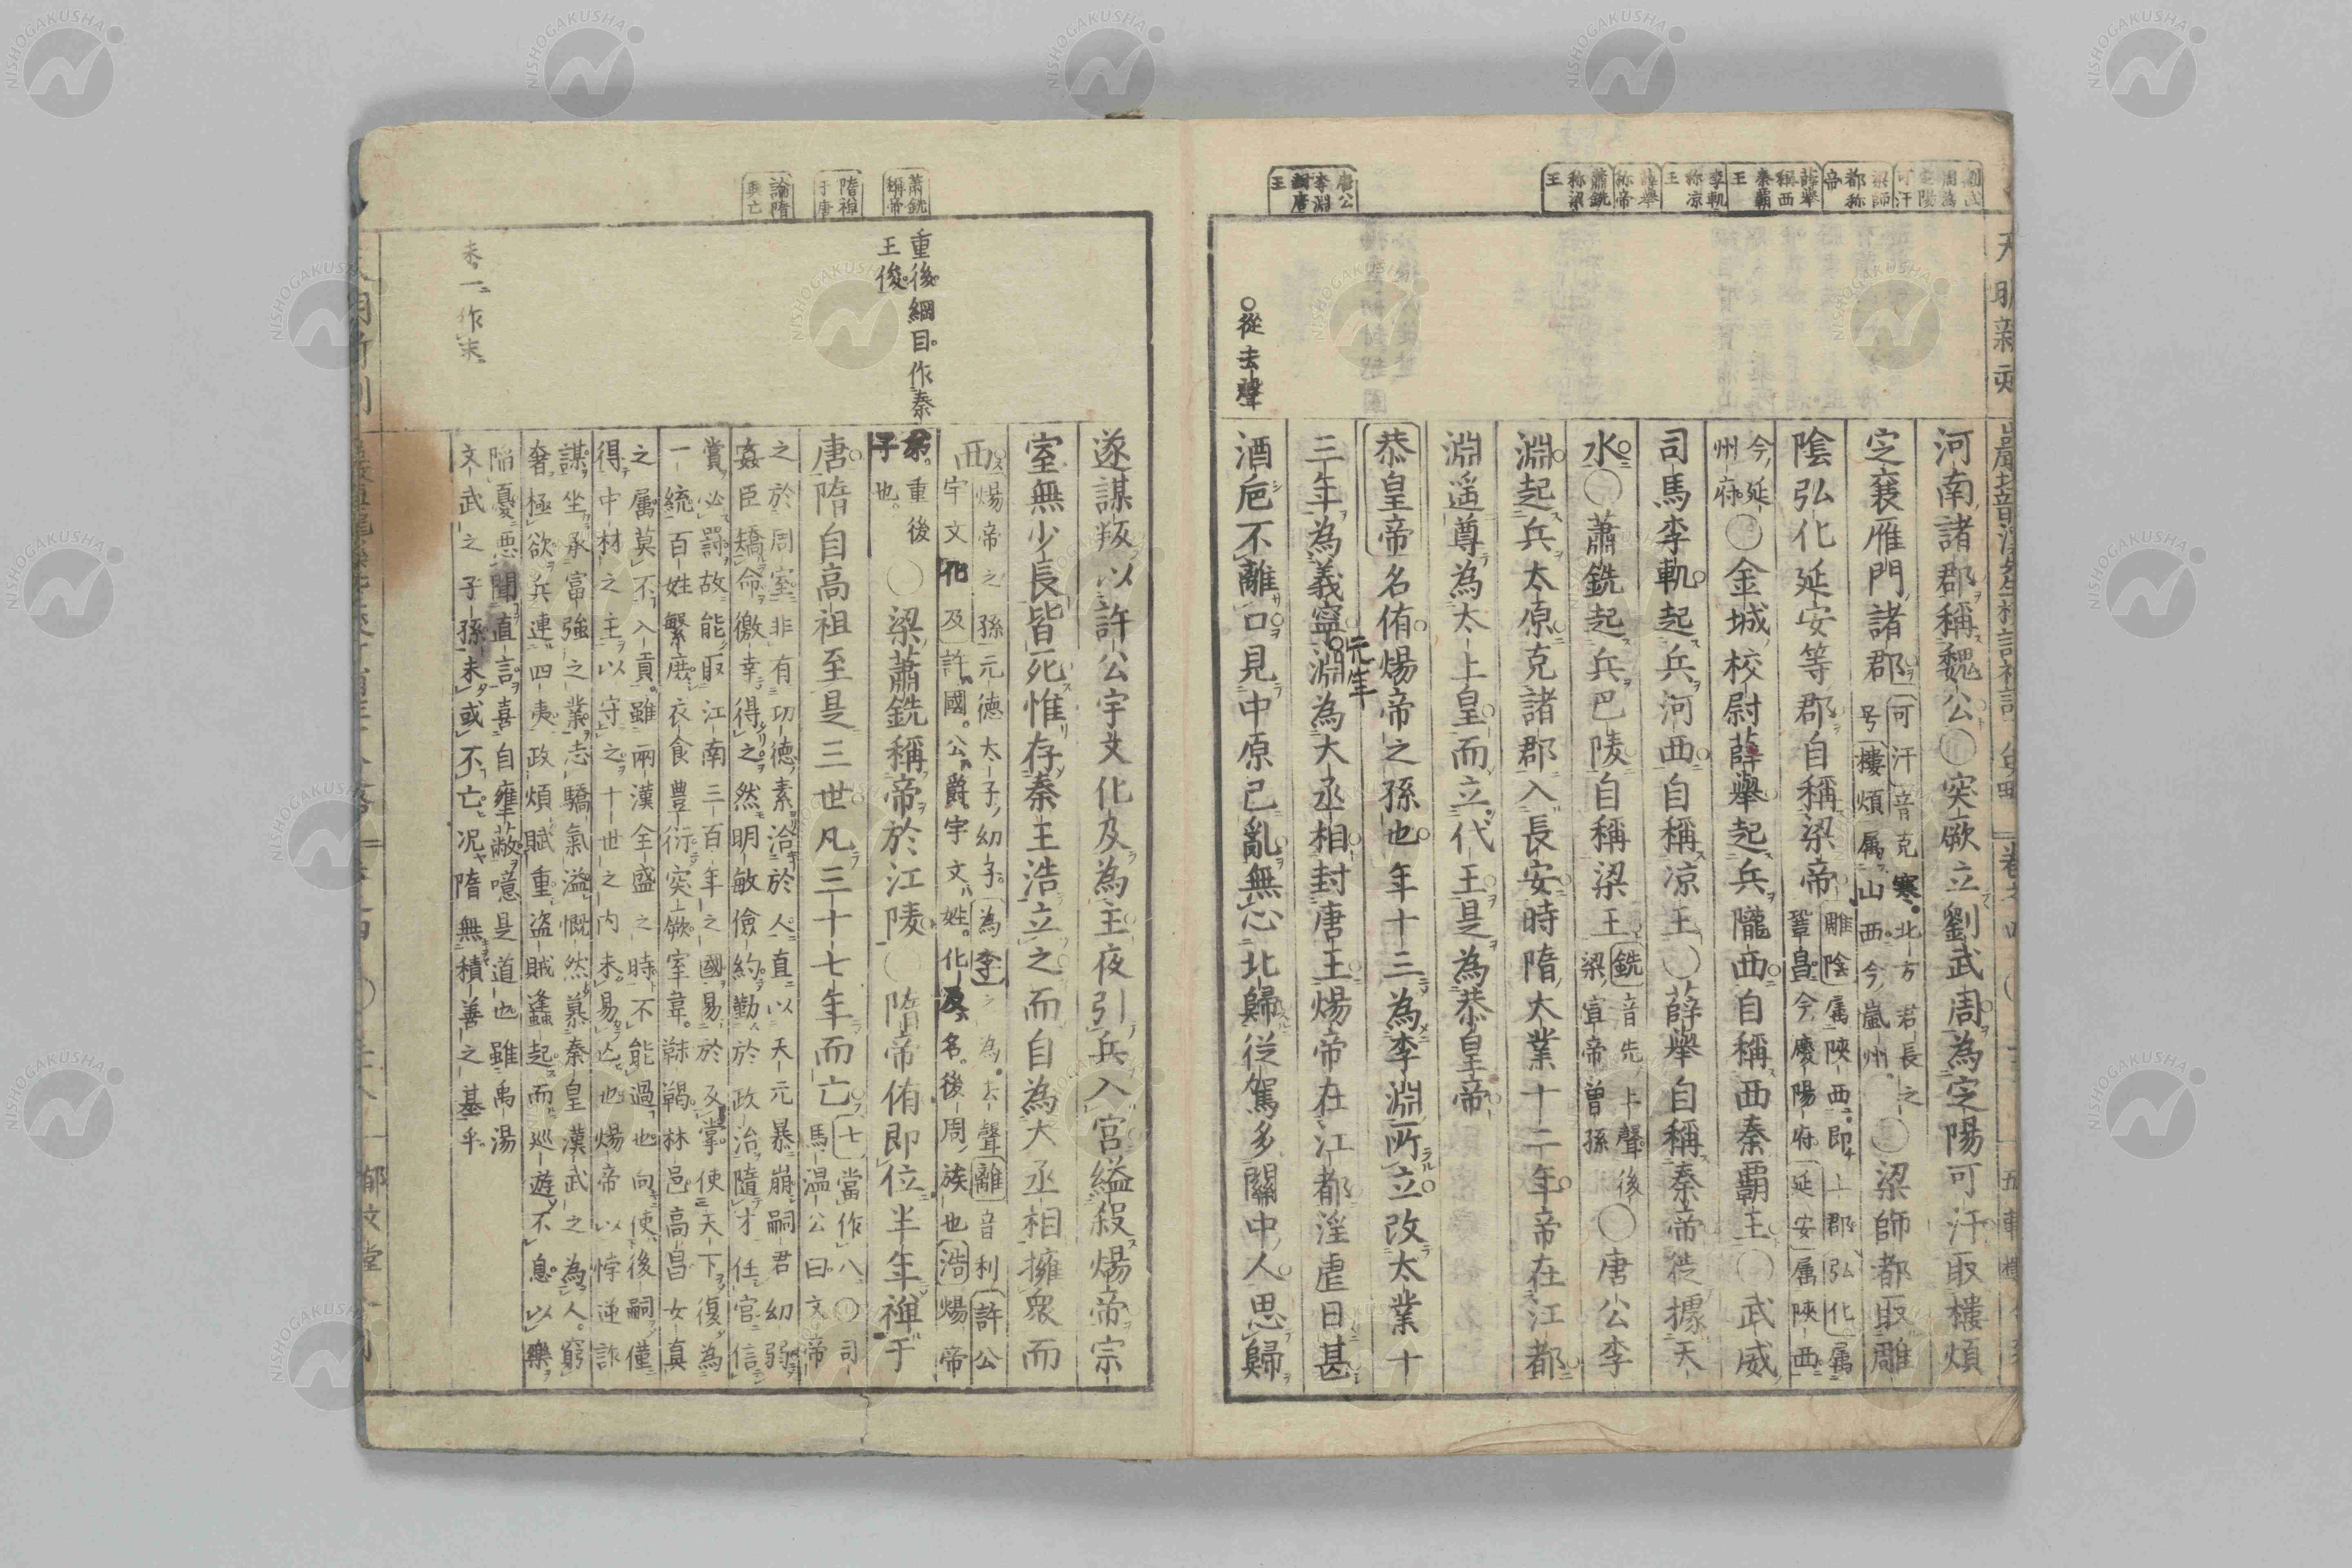 河南諸郡稱魏公○突厥立劉武周為定陽可汗取樓煩
定襄雁門諸郡可汗音克寒北方君長之号樓煩属山西今嵐州○梁師都取雕
陰弘化延安等郡自稱梁帝雕陰属陝西即上郡弘化属鞏昌今慶陽府延安属陝西
今延州府○金城校尉薛擧起兵隴西自稱西秦覇王○武威
司馬李軌起兵河西自稱涼王○薛擧自稱秦帝徙據天
水○蕭銑起兵巴陵自稱梁王銑音先上聲後梁宣帝曽孫○唐公李
淵起兵太原克諸郡入長安時隋大業十二年帝在江都
淵遥尊為太上皇而立代王是為恭皇帝
恭皇帝名侑煬帝之孫也年十三為李淵所立改大業十
三年為義寧元年淵為大丞相封唐王煬帝在江都淫虐日甚
酒巵不離口見中原已亂無心北歸從駕多關中人思歸
○從去聲
唐公李淵為唐王
蕭銑称梁王
薛擧称帝
李軌称涼王
薛擧稱西秦覇王
梁師都称帝
遂謀叛以許公宇文化及為主夜引兵入宮縊殺煬帝宗
室無少長皆死惟存秦王浩立之而自為大丞相擁衆而
西煬帝之孫元德太子幼子為李之為去聲離音利許公宇文化及許國公爵宇文姓化及名後周族也浩煬帝
弟重後子也○梁蕭銑稱帝於江陵○隋帝侑即位半年禅于
唐隋自高祖至是三世凡三十七年而亡七當作八○司馬温公曰文帝
之於周室非有功德素洽於人直以天元暴崩嗣君幼弱
姦臣矯命徼幸得之然明敏儉約勤於政治隨才任官信
賞必罰故能取江南三百年之國易於反掌使天下復為
一統百姓繁庶衣食豊衍突厥室韋靺鞨林邑高昌女真
之属莫不入貢雖兩漢全盛之時不能過也向使後嗣僅
得中材之主以守之十世之内未易亡也煬帝以悖逆詐
謀坐承富強之業志驕氣溢慨然慕秦皇漢武之為人窮
奢極欲兵連四夷政煩賦重盗賊蠭起而巡遊不息以樂
陷憂悪聞直言喜自壅蔽噫是道也雖禹湯
文武之子孫未或不亡况隋無積善之基乎
重後綱目作秦王俊
未一作末
蕭銑稱帝
隋禅于唐
論隋興亡